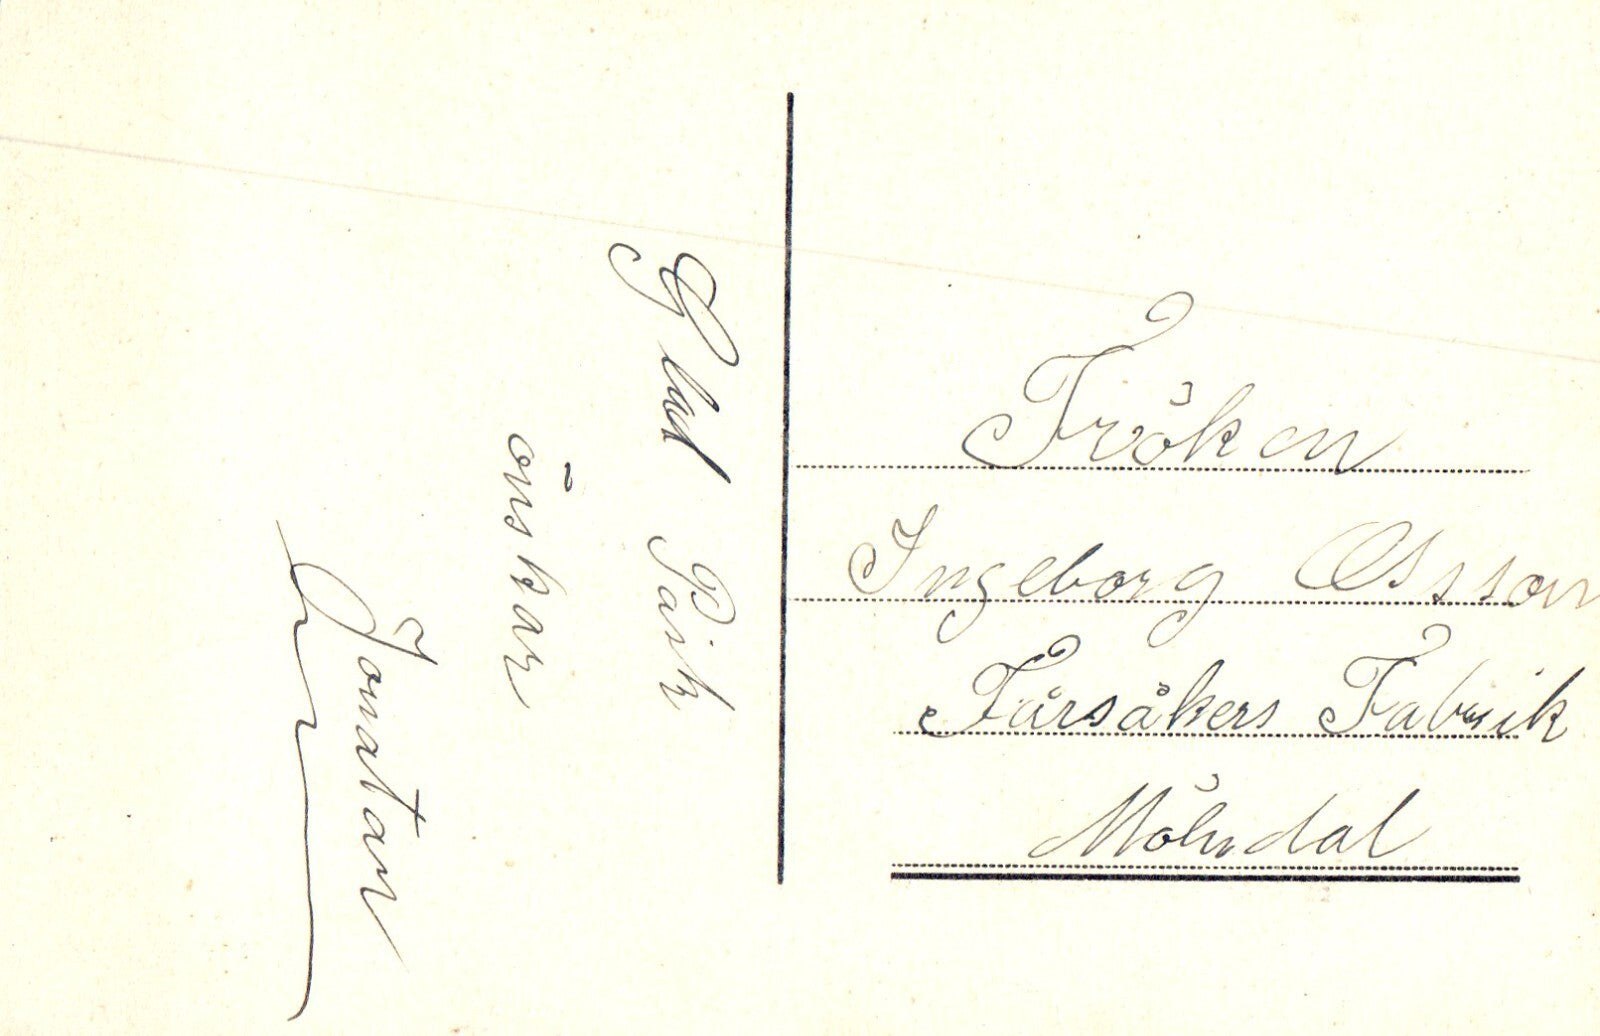 Glad Påsk
önskar
Jonatan
Fröken
Ingeborg Olsson
Fårsåkers Fabrik
Mölndal